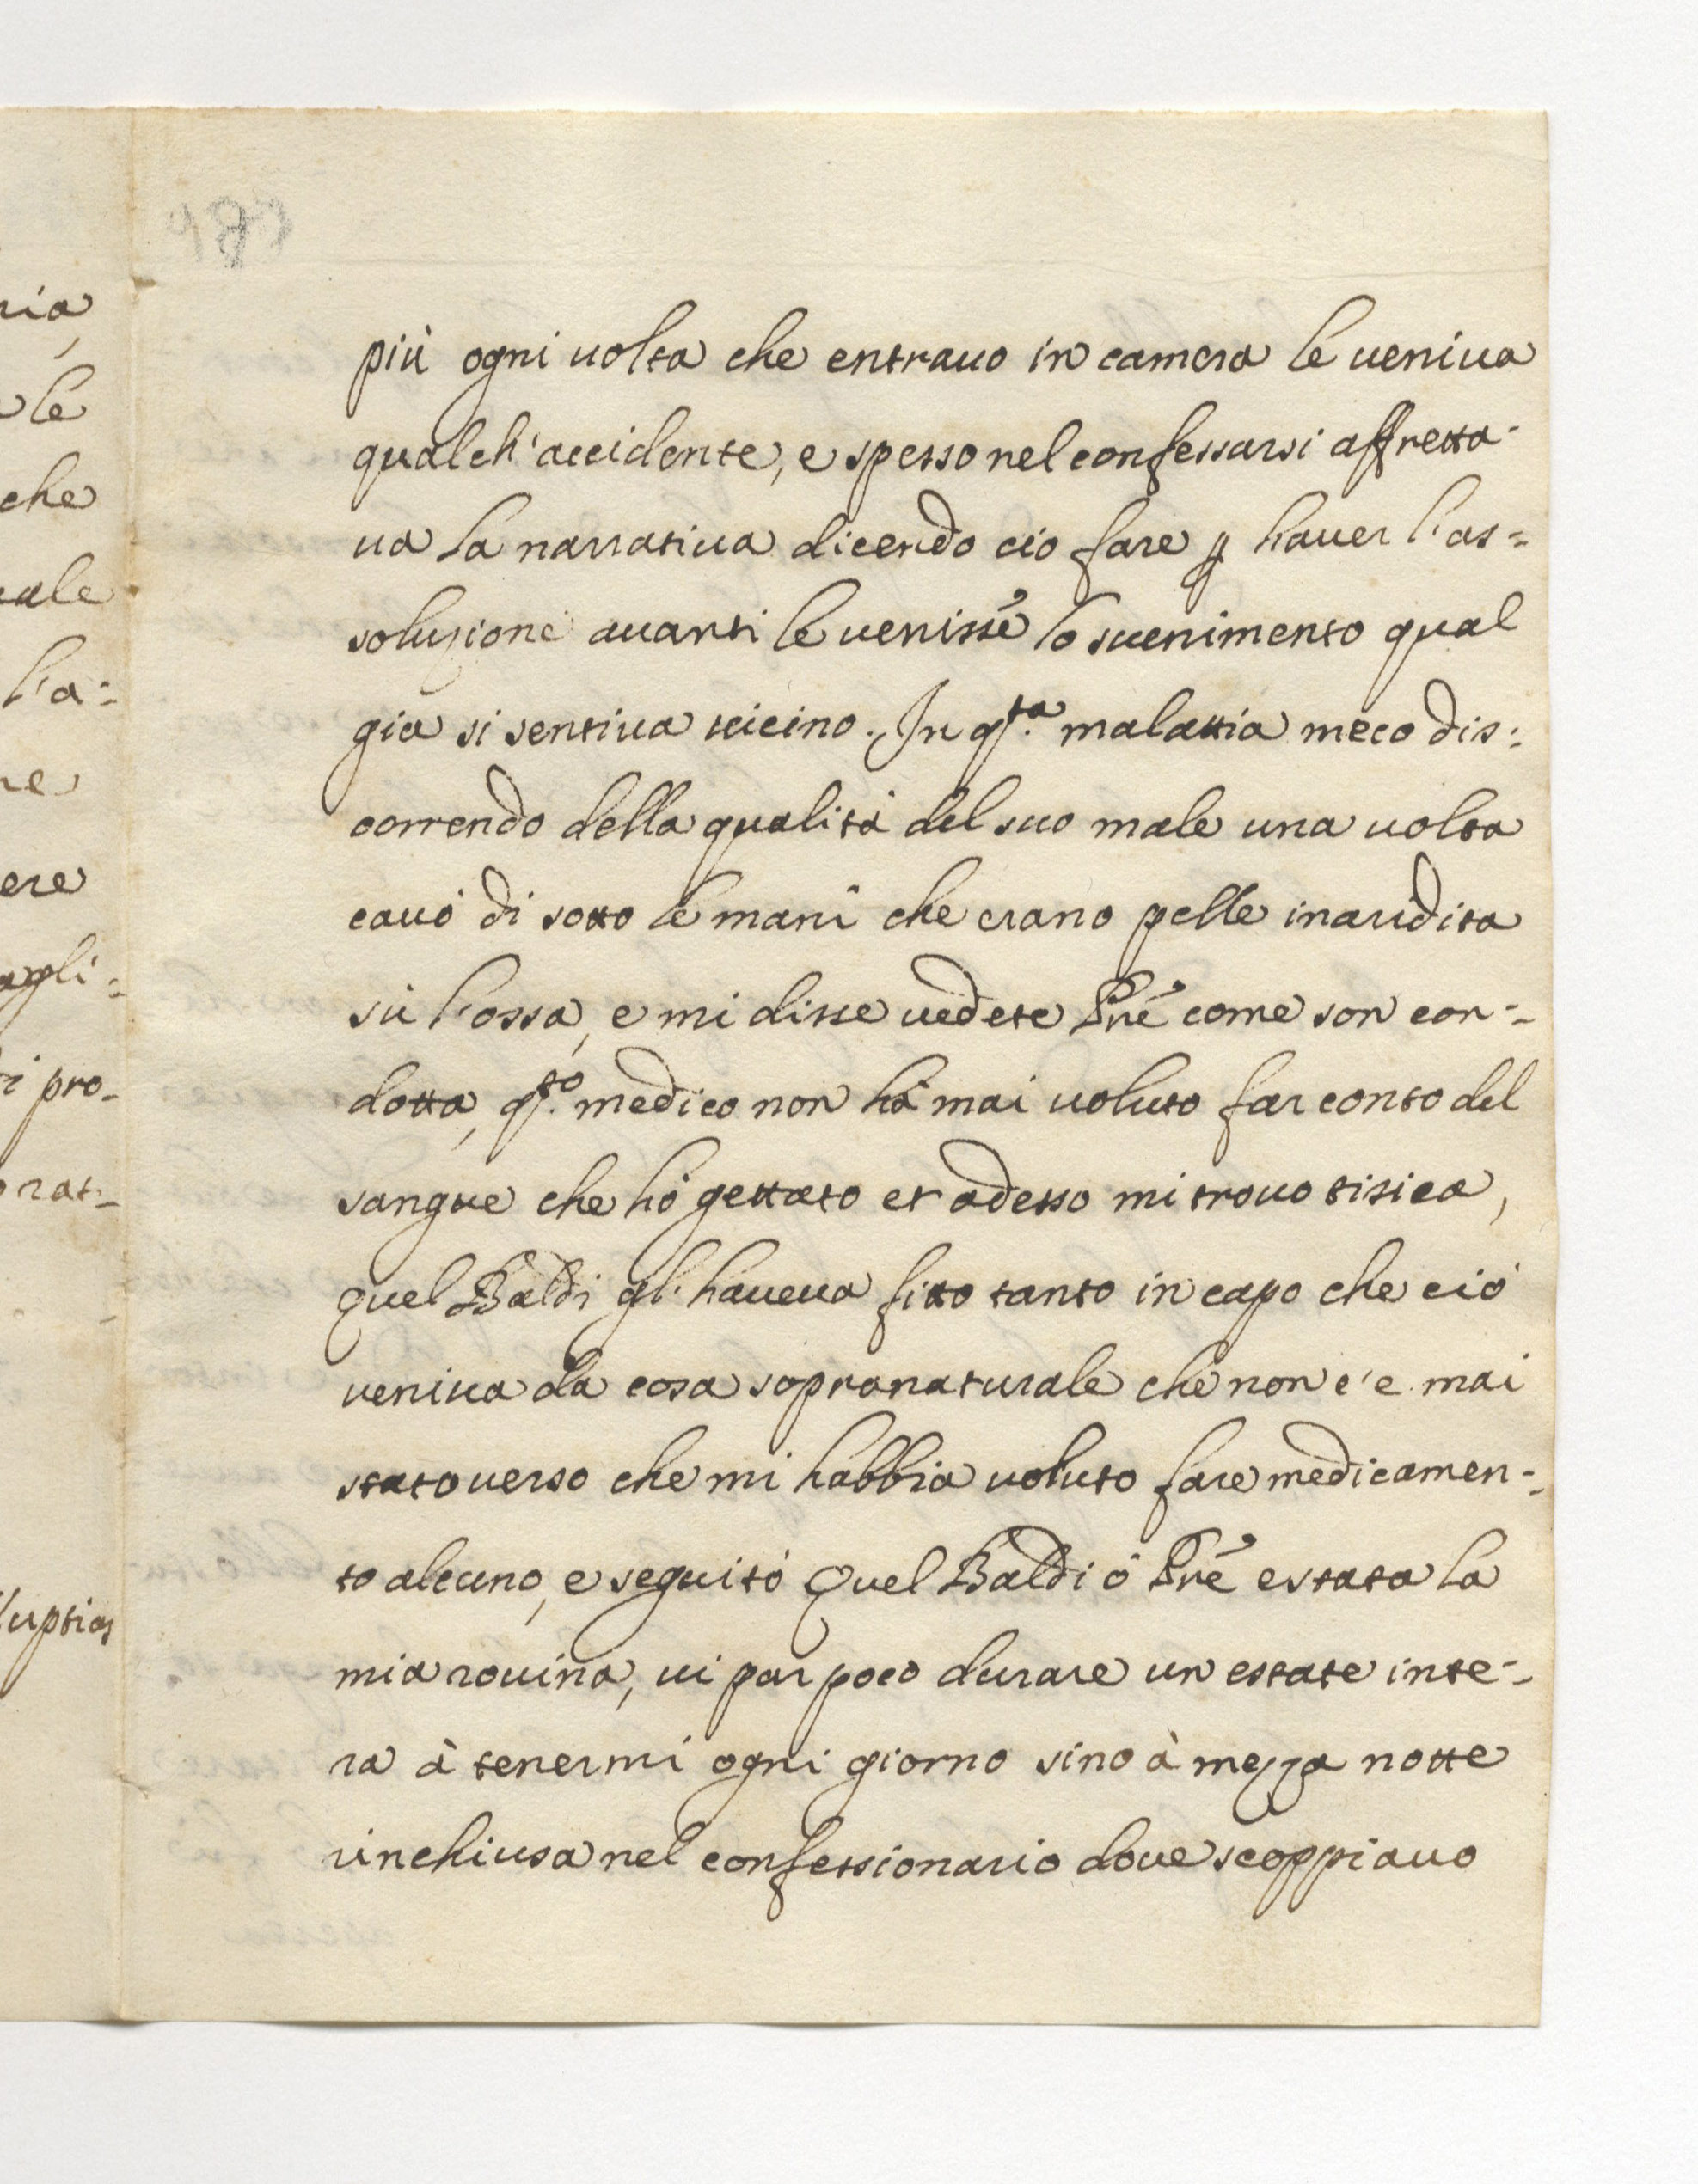 più ogni uolta che entrauo in camera le ueniua
qualch'accidente, e spesso nel confessarsi affretta-
ua la narratiua dicendo cio fare p hauer l'as=
soluzione auanti le uenisse lo suenimento qual
gia si sentiua uicino. In q.ta malattia meco dis:
correndo della qualità del suo male una uolta
cauò di sotto le mani che erano pelle inaridita
sù l'ossa, e mi disse uedete Pre come son con=
dotta, q.to medico non hà mai uoluto far conto del
sangue che hò gettato et adesso mi trouo tisica,
quel Baldi gl'haueua fitto tanto in capo che ciò
ueniua da cosa sopranaturale che non c'e mai
stato uerso che mi habbia uoluto fare medicamen=
to alcuno, e seguitò quel Baldi ò Pre e stata la
mia rouina, ui par poco durare un estate inte=
ra à tenermi ogni giorno sino à mezza notte
rinchiusa nel confessionario doue scoppiauo